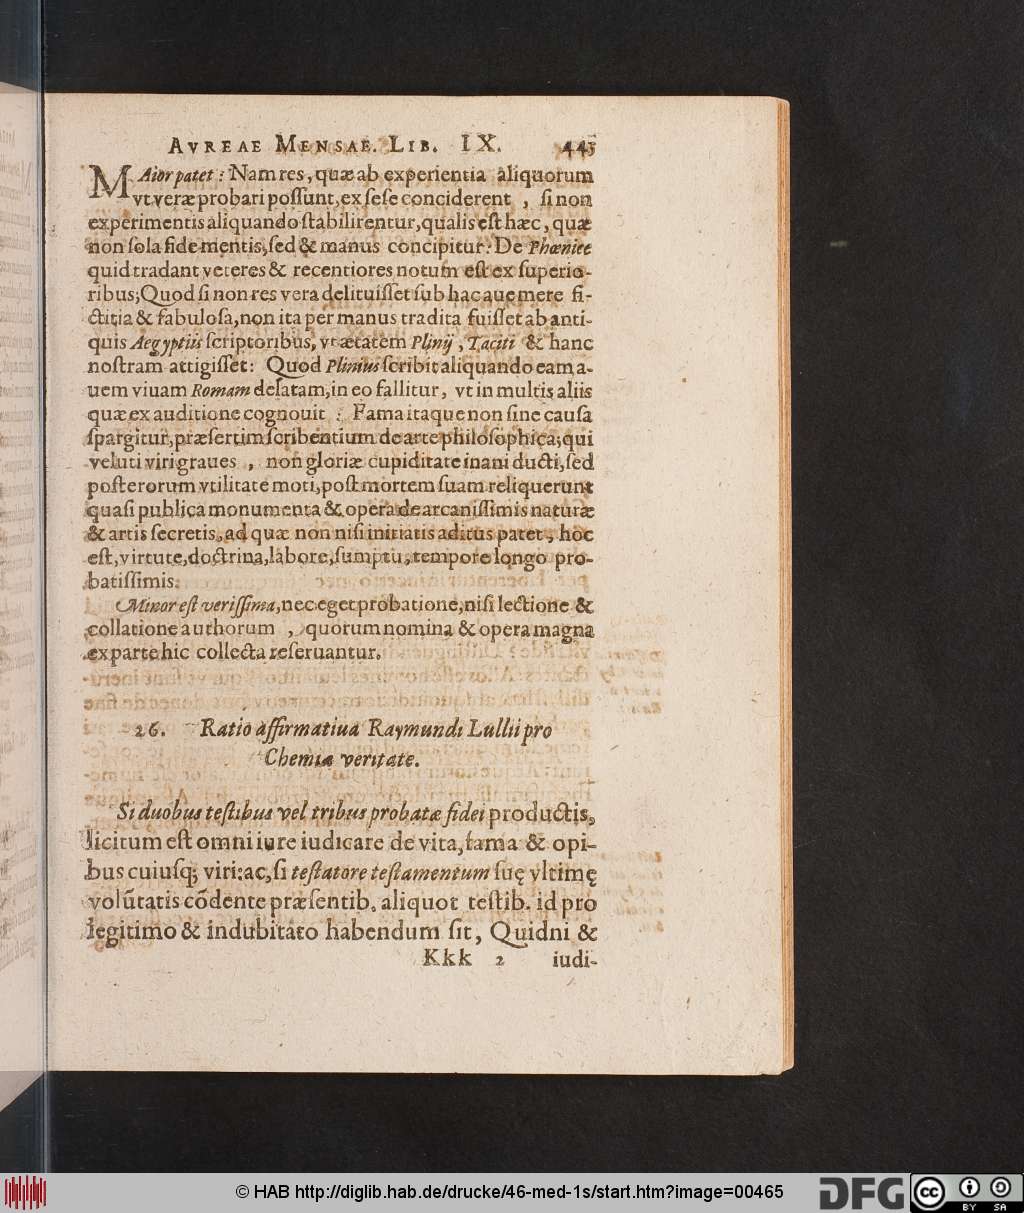 AVREAE MENSAE. LIB. IX. 443
MAior patet: Nam res, quæ ab experientia aliquorum
vt veræ probari possunt, ex sese conciderent, si non
experimentis aliquando stabilirentur, qualis est hæc, quæ
non sola fide mentis, sed & manus concipitur: De Phœnice
quid tradant veteres & recentiores notum est ex superio-
ribus; Quod si non res vera delituisset sub hac aue mere fi-
ctitia & fabulosa, non ita per manus tradita fuisset ab anti-
quis Aegyptiis scriptoribus, vt ætatem Plinij, Taciti & hanc
nostram attigisset: Quod Plinius scribit aliquando eam a-
uem viuam Romam delatam, in eo fallitur, vt in multis aliis
quæ ex auditione cognouit: Fama itaque non sine causa
spargitur, præsertim scribentium de arte philosophica; qui
veluti viri graues, non gloriæ cupiditate inani ducti, sed
posterorum vtilitate moti, post mortem suam reliquerunt
quasi publica monumenta & opera de arcanissimis naturæ
& artis secretis, ad quæ non nisi initiatis aditus patet, hoc
est, virtute, doctrina, labore, sumptu, tempore longo pro-
batissimis.
Minor est verissima, nec eget probatione, nisi lectione &
collatione authorum, quorum nomina & opera magna
ex parte hic collecta reseruantur.
26. Ratio affirmatiua Raymundi Lullii pro
Chemiæ veritate.
Si duobus testibus vel tribus probatæ fidei productis,
licitum est omni iure iudicare de vita, fama & opi-
bus cuiusq; viri: ac, si testatore testamentum suę vltimę
volūtatis cōdente præsentib. aliquot testib. id pro
legitimo & indubitato habendum sit, Quidni &
Kkk 2 iudi-
© HAB http://diglib.hab.de/drucke/46-med-1s/start.htm?image=00465
DFG
cc BY SA